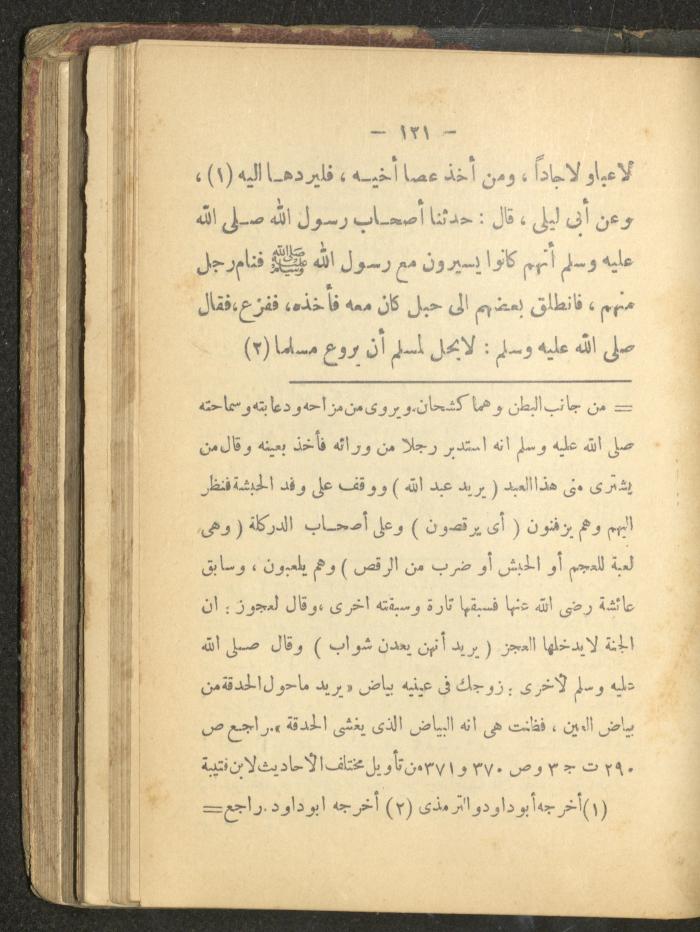 — ١٣١ —
لاعبا ولا جاداً ، ومن أخذ عصا أخيـه ، فليردهـا اليه (١) ،
وعن أبى ليلى ، قال : حدثنا أصحـاب رسول الله صـلى الله
عليه وسلم أنهم كانوا يسيرون مع رسول الله ﷺ فنام رجل
منهم ، فانطلق بعضهم الى حبل كان معه فأخذه، ففزع، فقال
صلى الله عليه وسلم : لايحل لمسلم أن يروع مسلما (٢)
= من جانب البطن وهما كشحان. ويروى من مزاحه ودعابته وسماحته
صلى الله عليه وسلم انه استدبر رجلا من ورائه فأخذ بعينه وقال من
يشترى منى هذا العبد ( يريد عبد الله ) ووقف على وفد الحبشة فنظر
اليهم وهم يزفنون ( أى يرقصون ) وعلى أصحـاب الدركلة ( وهى
لعبة للعجم أو الحبش أو ضرب من الرقص ) وهم يلعبون ، وسابق
عائشة رضى الله عنها فسبقها تارة وسبقته اخرى ، وقال لعجوز : ان
الجنة لايدخلها العجز ( يريد أنهن يعدن شواب ) وقال صـلى الله
عليه وسلم لأخرى : زوجك فى عينيه بياض « يريد ماحول الحدقة من
بياض العين ، فظنت هى انه البياض الذى يغشى الحدقة ». راجـع ص
٢٩٠ ت ج ٣ وص ٣٧٠ و ٣٧١ من تأويل مختلف الأحاديث لابن قتيبة
(١) أخرجه أبو داود والترمذى (٢) أخرجه ابو داود. راجع =